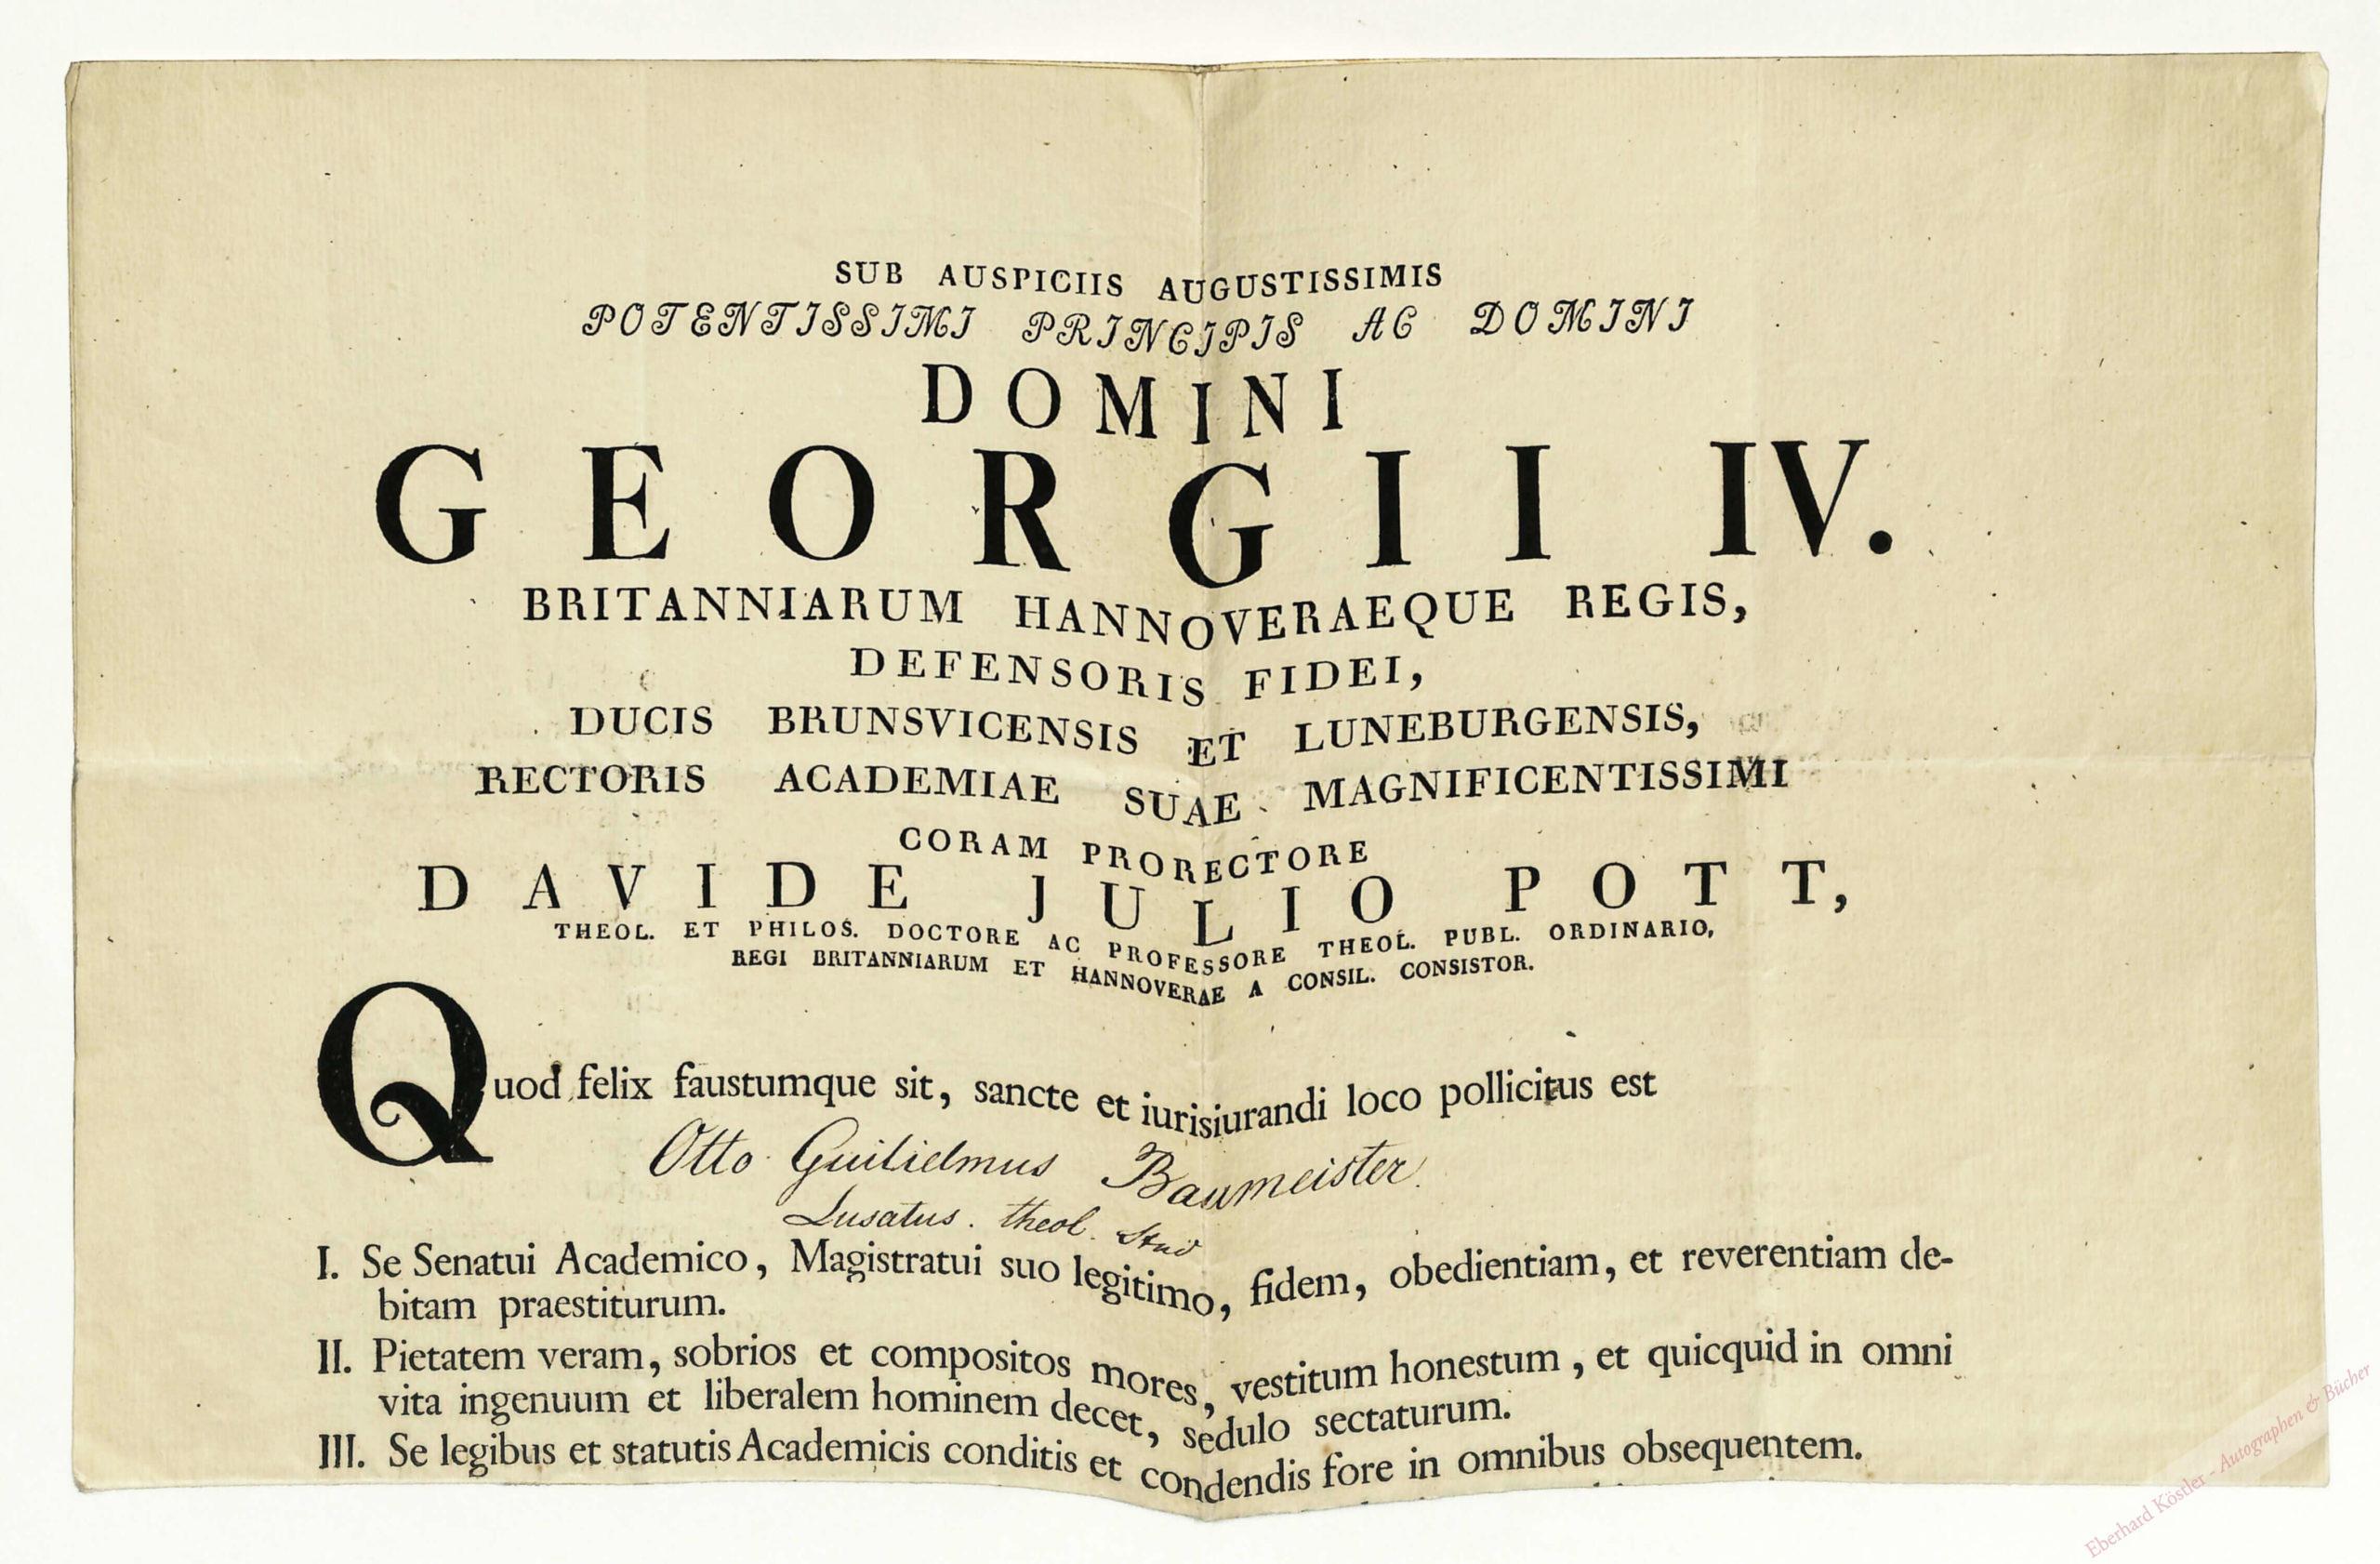 SUB AUSPICIIS AUGUSTISSIMIS
POTENTISSIMI PRINCIPIS AC DOMINI
DOMINI
GEORGII IV.
BRITANNIARUM HANNOVERAEQUE REGIS,
DEFENSORIS FIDEI,
DUCIS BRUNSVICENSIS ET LUNEBURGENSIS,
RECTORIS ACADEMIAE SUAE MAGNIFICENTISSIMI
CORAM PRORECTORE
DAVIDE JULIO POTT,
THEOL. ET PHILOS. DOCTORE AC PROFESSORE THEOL. PUBL. ORDINARIO,
REGI BRITANNIARUM ET HANNOVERAE A CONSIL. CONSISTOR.
Quod felix faustumque sit, sancte et iurisiurandi loco pollicitus est
Otto Guilielmus Baumeister.
Lusatus. theol. Stud
I. Se Senatui Academico, Magistratui suo legitimo, fidem, obedientiam, et reverentiam de-
bitam praestiturum.
II. Pietatem veram, sobrios et compositos mores, vestitum honestum, et quicquid in omni
vita ingenuum et liberalem hominem decet, sedulo sectaturum.
III. Se legibus et statutis Academicis conditis et condendis fore in omnibus obsequentem.
Eberhard Köstler - Autographen & Bücher